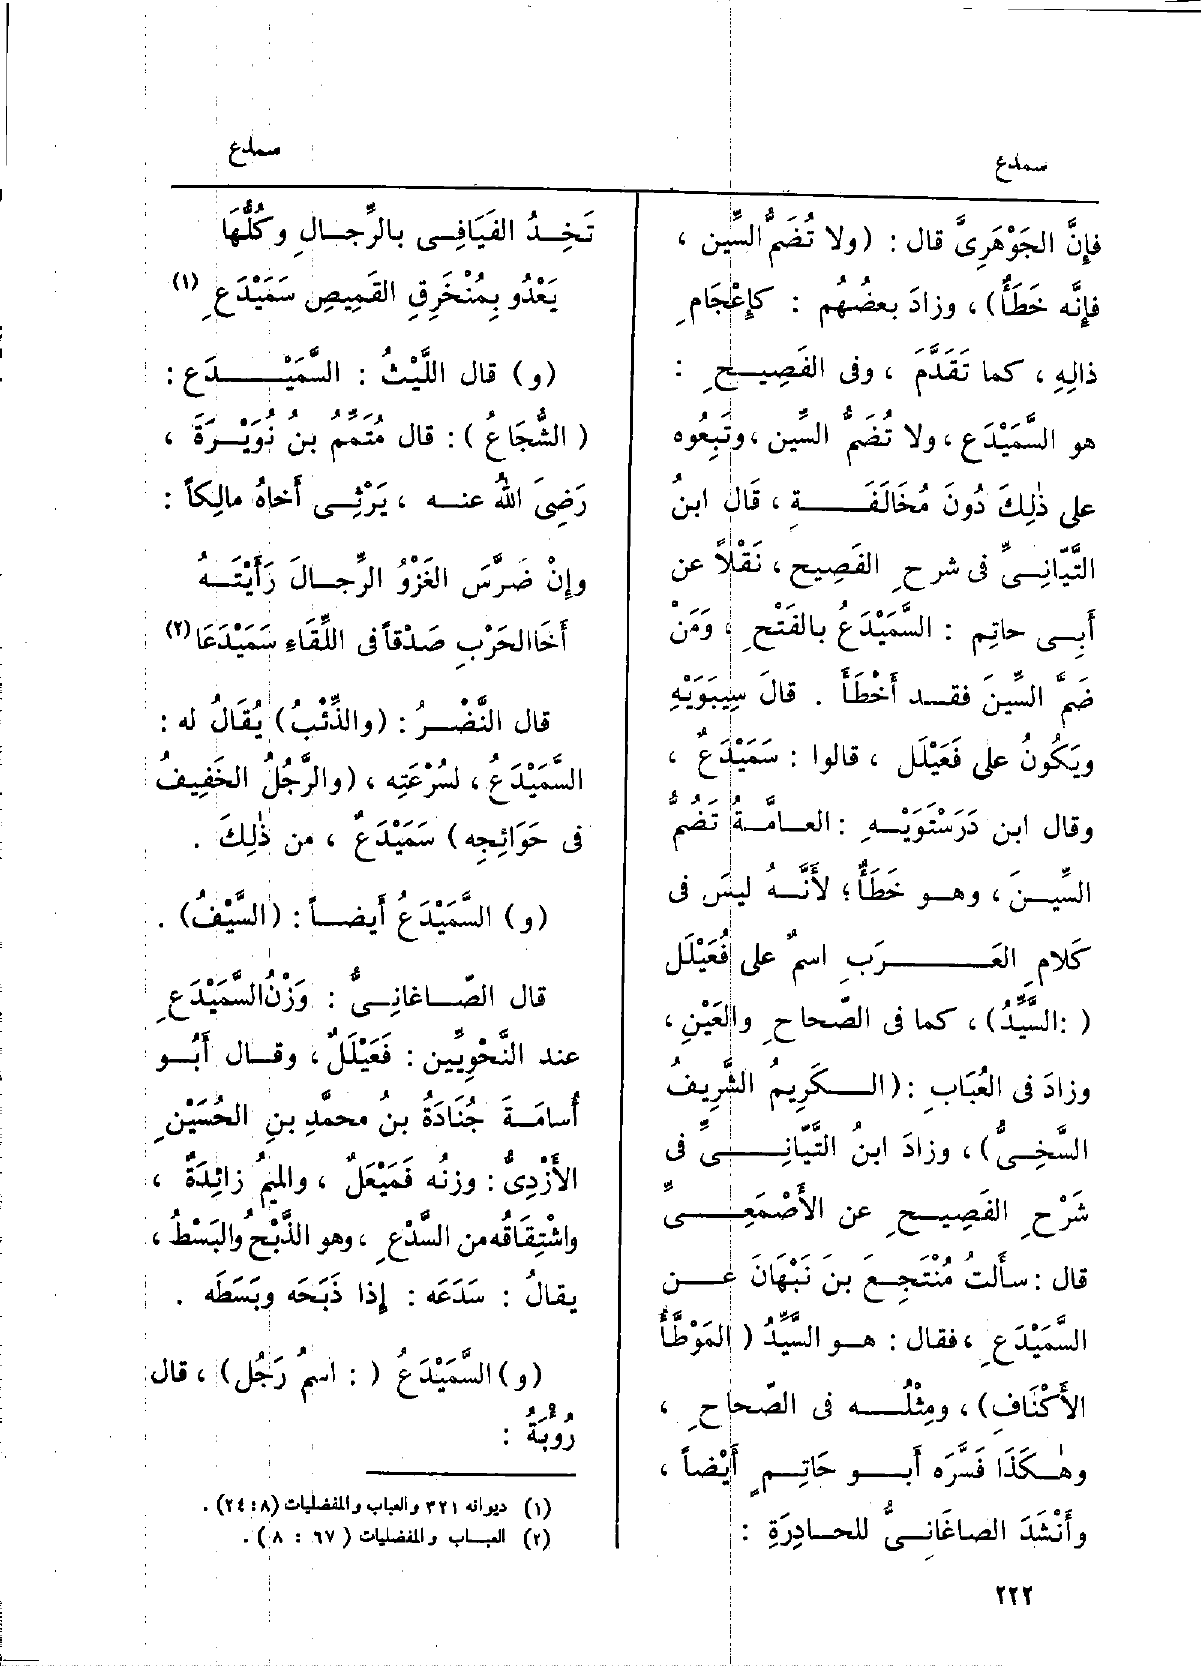 سمدع
سمدع
فإِنَّ الجَوْهَرِىَّ قال : (ولا تُضَمُّ السِّين ،
فإِنَّه خَطَأٌ) ، وزادَ بعضُهُم : كإِعْجَامِ
ذالِهِ ، كما تَقَدَّمَ ، وفى الفَصِيــحِ :
هو السَّمَيْدَع ، ولا تُضَمُّ السِّين ، وتَبِعُوه
على ذٰلِكَ دُونَ مُخَالَفَــــةٍ ، قَالَ ابنُ
التَّيّانِــىِّ فى شرحِ الفَصِيح ، نَقْلاً عن
أَبِــى حاتِم : السَّمَيْدَعُ بالفَتْحِ ، وَمَنْ
ضَمَّ السِّينَ فقــد أَخْطَأَ . قالَ سِيبَوَيْهِ
ويَكُونُ على فَعَيْلَل ، قالوا : سَمَيْدَعٌ ،
وقال ابن دَرَسْتَوَيْــهِ : العــامَّةُ تَضُمُّ
السِّيــنَ ، وهــو خَطَأٌ ؛ لأَنَّــهُ ليسَ فى
كَلامِ العَــــــرَبِ اسمٌ على فُعَيْلَل
( : السَّيِّدُ) ، كما فى الصّحاحِ والعَيْنِ ،
وزادَ فى العُبَابِ : (الــكَرِيمُ الشَّرِيفُ
السَّخِــىُّ) ، وزادَ ابنُ التَّيّانِــــىِّ فى
شَرْحِ الفَصِيــحِ عن الأَصْمَعِــــىِّ
قال : سأَلتُ مُنْتَجِعَ بن نَبْهَانَ عــن
السَّمَيْدَعِ ، فقال : هــو السَّيِّدُ ( المُوَطَّأُ
الأَكْنَافِ) ، ومِثْلُــــه فى الصّحاحِ ،
وهٰــكَذَا فَسَّرَه أَبــو حَاتِــمٍ أَيْضاً ،
وأَنْشَدَ الصاغَانِــىُّ للحــادِرَةِ :
تَخِــدُ الفَيَافِــى بالرِّجــالِ وكُلُّها
يَعْدُو بِمُنْخَرِقِ القَمِيصِ سَمَيْدَعِ (١)
(و) قال اللَّيْثُ : السَّمَيْــــدَع :
( الشُّجَاعُ ) : قال مُتَمِّمُ بنُ نُوَيْــرَةَ ،
رَضِىَ اللهُ عنــه ، يَرْثِــى أَخاهُ مالِكاً :
وإِنْ ضَرَّسَ الغَزْوُ الرِّجــالَ رَأَيْتَــهُ
أَخَا الحَرْبِ صَدْقاً فى اللِّقَاءِ سَمَيْدَعَا (٢)
قال النَّضْــرُ : (والذِّئْبُ) يُقَالُ له :
السَّمَيْدَعُ ، لسُرْعَتِه ، (والرَّجُلُ الخَفِيفُ
فى حَوَائِجِه) سَمَيْدَعٌ ، من ذٰلِكَ .
(و) السَّمَيْدَعُ أَيضــاً : (السَّيْفُ) .
قال الصّــاغانِــىُّ : وَزْنُ السَّمَيْدَعِ
عند النَّحْوِيِّين : فَعَيْلَلٌ ، وقــال أَبُــو
أُسامَــةَ جُنَادَةُ بنُ محمَّدِ بنِ الحُسَيْنِ
الأَزْدِىُّ : وزنُه فَمَيْعَلٌ ، والميمُ زائِدَةٌ ،
واشْتِقَاقُه من السَّدْعِ ، وهو الذَّبْحُ والبَسْطُ ،
يقالُ : سَدَعَه : إِذا ذَبَحَه وبَسَطَه .
(و) السَّمَيْدَعُ ( : اسمُ رَجُل) ، قال
رُؤبَةُ :
(١) ديوانه ٣٢١ والعباب والمفضليات (٨ : ٢٤) .
(٢) العبــاب والمفضليات ( ٦٧ : ٨ ) .
٢٢٢